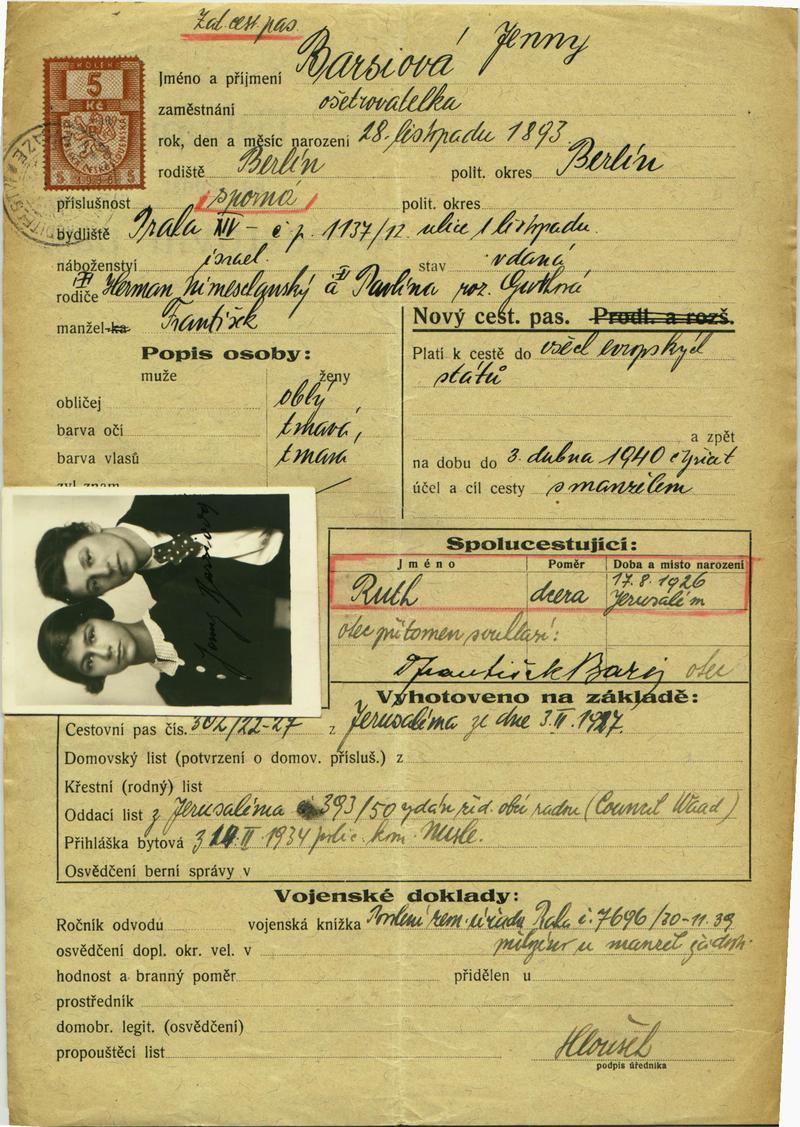 Zat. cest. pas.
KOLEK
5
Kč
5 1938 5
Jméno a příjmení Barsiová Jenny
zaměstnání ošetrovatelka
rok, den a měsíc narození 28. listopadu 1893
rodiště Berlín polit. okres Berlín
příslušnost sporná polit. okres
bydliště Praha XIV - č p. 1137/12 ulice 1 listopadu.
náboženství israel. stav vdaná
rodiče Herman a Pavlína roz.
manžel-ka František
Nový cest. pas. Prodl. a rozš.
Popis osoby:
muže ženy
obličej oblý
barva očí tmavá,
barva vlasů tmavá
zvl. znam.
Platí k cestě do všech evropských
států
a zpět
na dobu do 3. dubna 1940
účel a cíl cesty s manželem
Spolucestující:
Jméno Poměr Doba a místo narození
Ruth dcera 17.8.1926
Jerusalém
otec přítomen souhlasí:
František otec
Vyhotoveno na základě:
Cestovní pas čís. 302/22-27 z Jerusaléma ze dne 3.II.1927.
Domovský list (potvrzení o domov. přísluš.) z
Křestní (rodný) list
Oddací list z Jerusaléma 393/50 vydán žid. obcí radou (Council Waad)
Přihláška bytová z II. 1934 polic. kom. Nusle.
Osvědčení berní správy v
Vojenské doklady:
Ročník odvodu vojenská knížka č. 7696/30-11.39
osvědčení dopl. okr. vel. v
hodnost a branný poměr přidělen u
prostředník
domobr. legit. (osvědčení)
propouštěcí list
podpis úředníka